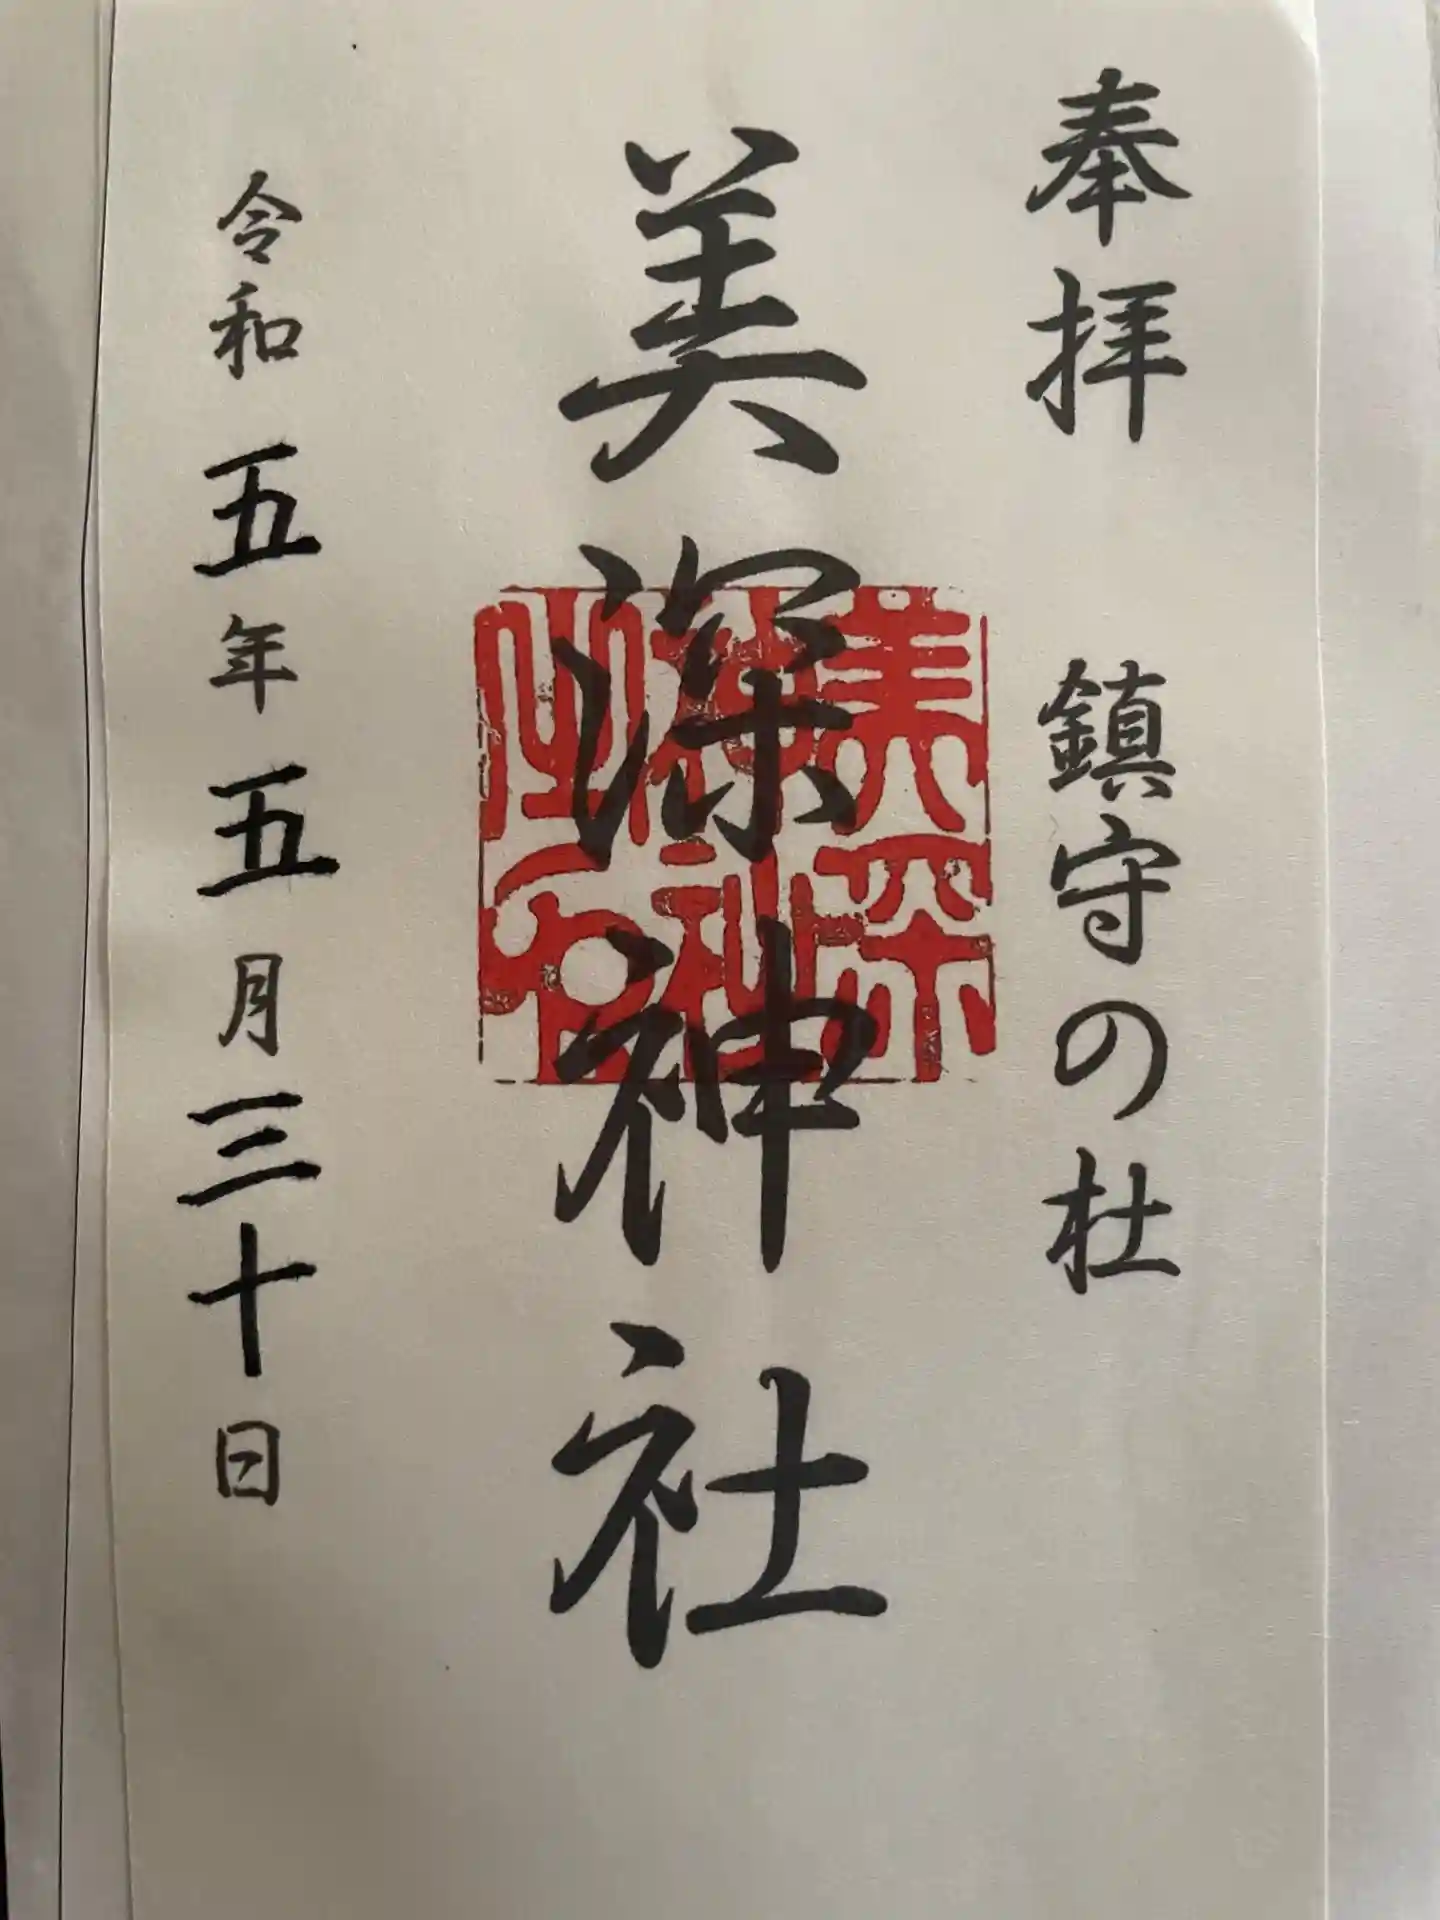 奉拝 鎮守の杜
美深神社
美深神社之印
令和五年五月三十日